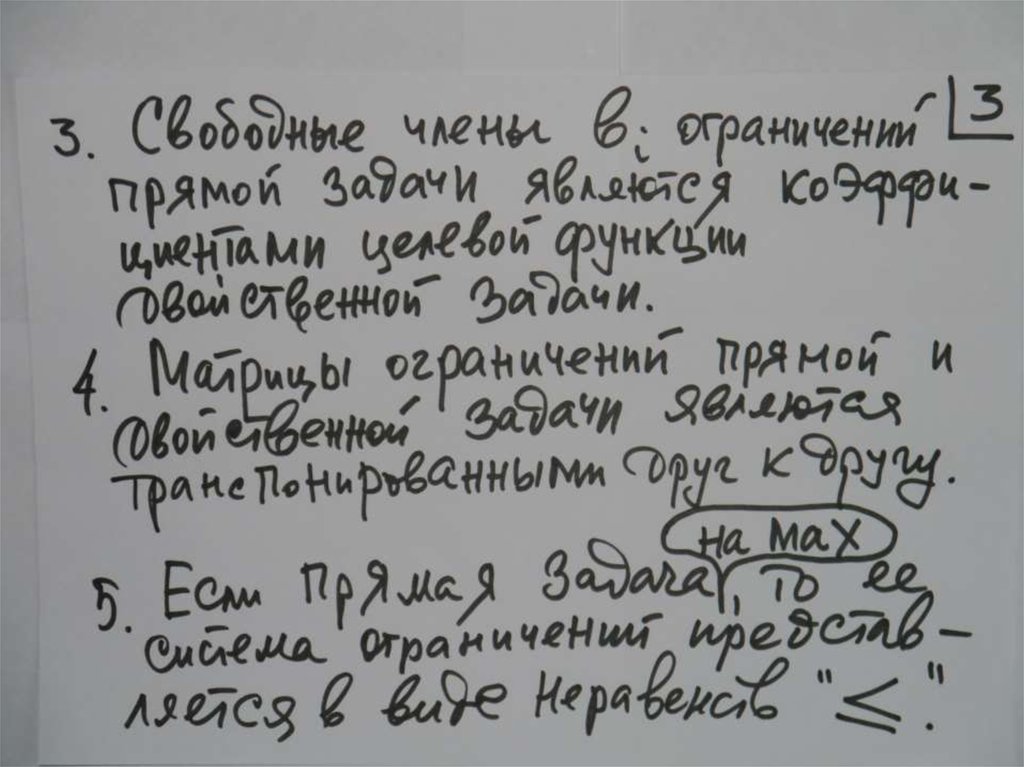 3. Свободные члены bᵢ ограничений 3
прямой задачи являются коэффи-
циентами целевой функции
двойственной задачи.
4. Матрицы ограничений прямой и
двойственной задачи являются
транспонированными друг к другу.
на max
5. Если прямая задача, то ее
система ограничений представ-
ляется в виде неравенств "≤".